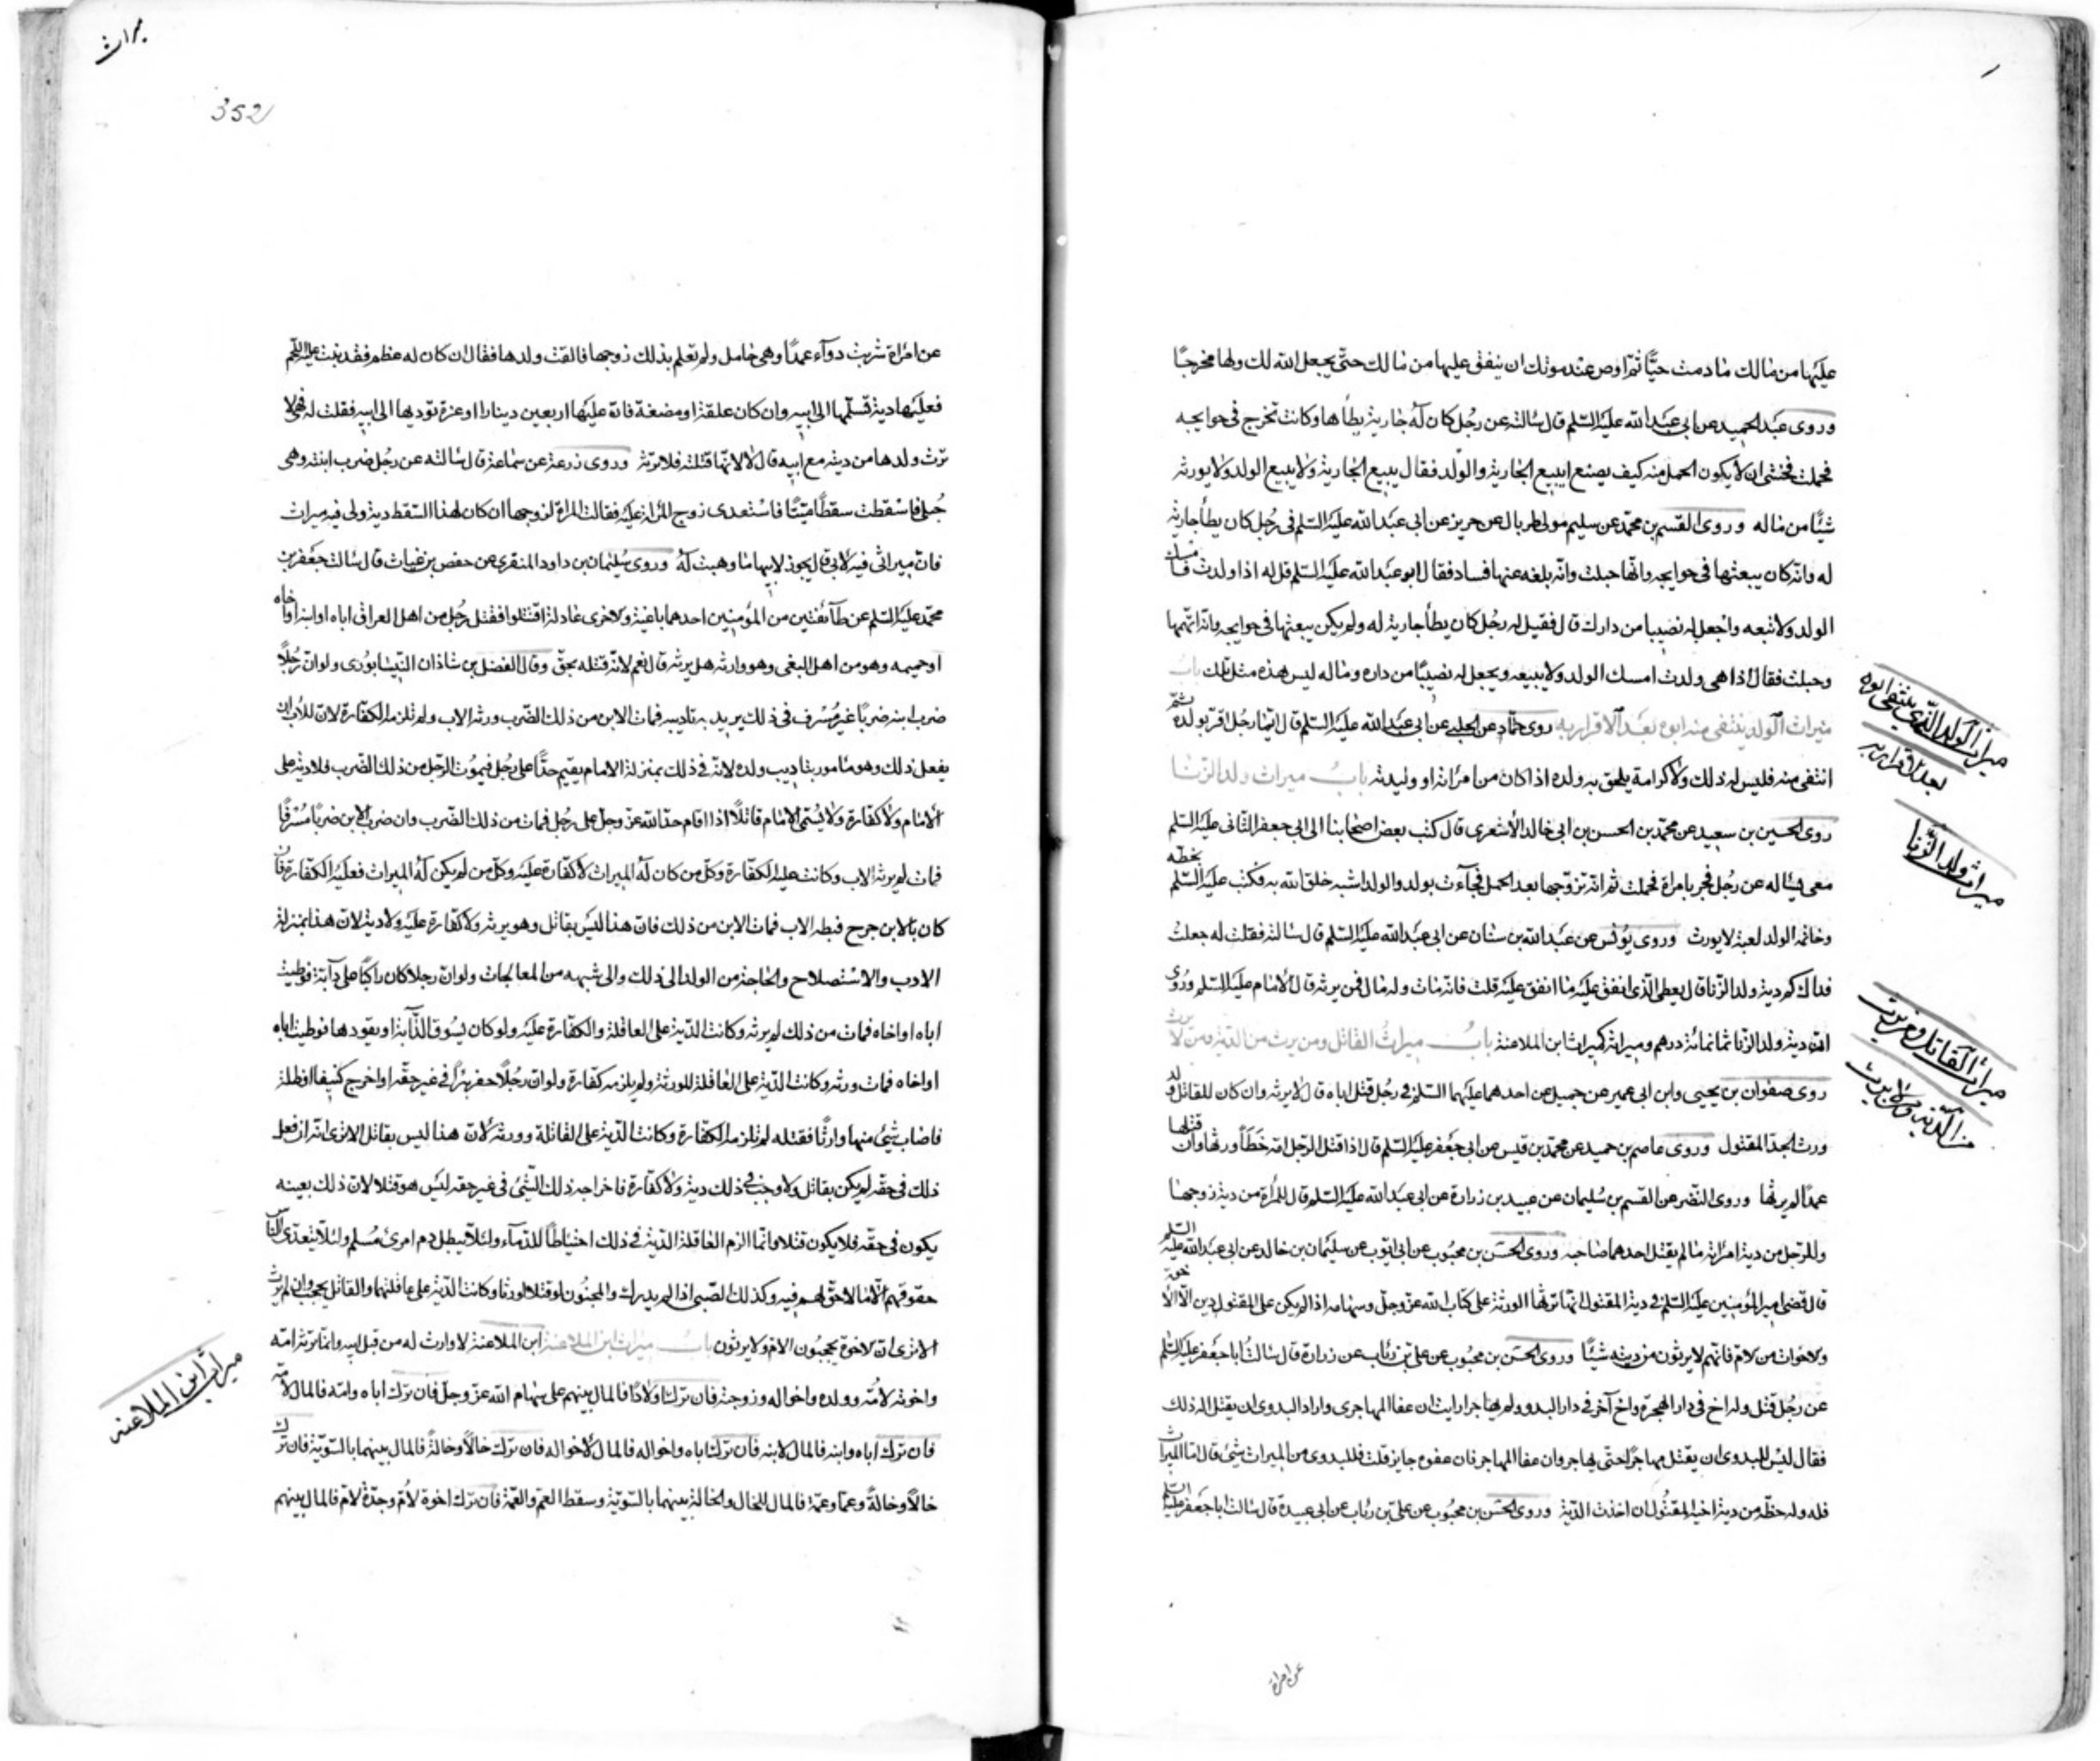 عليها من مالك ما دمت حيّاً ثم اوص عند موتك ان ينفق عليها من مالك حتّى يجعل الله لك ولها مخرجاً
وروى عبد الحميد عن ابى عبد الله عليه السّلم قال سالته عن رجل كان له جارية يطأها وكانت تخرج فى حوايجه
فحملت فخشى ان لا يكون الحمل منه كيف يصنع ايبيع الجارية والولد فقال يبيع الجارية ولا يبيع الولد ولا يورثه
شيئاً من ماله وروى القسم بن محمّد عن سليم مولى طربال عن حريز عن ابى عبد الله عليه السّلم فى رجل كان يطأ جارية
له وانّه كان يبعثها فى حوايجه وانّها حبلت وانّه بلغه عنها فساد فقال ابو عبد الله عليه السّلم قل له اذا ولدت فامسك
الولد ولا تبعه واجعل له نصيبا من دارك قال فقيل له رجل كان يطأ جارية له ولم يكن يبعثها فى حوايجه وانّه اتّهمها
وحبلت فقال اذا هى ولدت امسك الولد ولا يبيعه ويجعل له نصيباً من داره وماله ليس هذه مثل تلك باب
ميراث الولد ينتفى منه ابوه بعد الاقرار به روى حمّاد عن الحلبى عن ابى عبد الله عليه السّلم قال ايّما رجل اقرّ بولده ثمّ
انتفى منه فليس له ذلك ولا كرامة يلحق به ولده اذا كان من امرأته او وليدته باب ميراث ولد الزنا
روى الحسين بن سعيد عن محمّد بن الحسن بن ابى خالد الأشعرى قال كتب بعض اصحابنا الى ابى جعفر الثّانى عليه السّلم
معى يساله عن رجل فجر بامراة فحملت ثم انّه تزوّجها بعد الحمل فجاءت بولد والولد اشبه خلق الله به فكتب عليه السّلم بخطّه
وخاتمه الولد لغية لا يورث وروى يونس عن عبد الله بن سنان عن ابى عبد الله عليه السّلم قال سالته فقلت له جعلت
فداك كم دية ولد الزّنا قال يعطى الّذى انفق عليه ما انفق عليه قلت فانّه مات وله مال فمن يرثه قال الامام عليه السّلم وروى
انّ دية ولد الزّنا ثمانمائة درهم وميراثه كميراث ابن الملاعنة باب ميراث القاتل ومن يرث من الدّية ومن لا يرث
روى صفوان بن يحيى وابن ابى عمير عن جميل عن احدهما عليهما السّلم فى رجل قتل اباه قال لا يرثه وان كان للقاتل ولد
ورث الجدّ المقتول وروى عاصم بن حميد عن محمّد بن قيس عن ابى جعفر عليه السّلم قال اذا قتل الرّجل امّه خطأ ورثها وان قتلها
عمداً لم يرثها وروى النّضر عن القسم بن سليمان عن عبيد بن زرارة عن ابى عبد الله عليه السّلم قال للمرأة من دية زوجها
وللرّجل من دية امرأته ما لم يقتل احدهما صاحبه وروى الحسن بن محبوب عن ابى ايّوب عن سليمان بن خالد عن ابى عبد الله عليه السّلم
قال قضى امير المؤمنين عليه السّلم فى دية المقتول انّها ترثها الورثة على كتاب الله عزّ وجلّ وسهامه اذا لم يكن على المقتول دين الّا الاخوة
والاخوات من الامّ فانّهم لا يرثون من ديته شيئاً وروى الحسن بن محبوب عن علىّ بن رئاب عن زرارة قال سالت ابا جعفر عليه السّلم
عن رجل قتل وله اخ فى دار الهجرة واخ آخر فى دار البدو ولم يهاجر ارايت ان عفا المهاجرى واراد البدوى ان يقتل اله ذلك
فقال ليس للبدوى ان يقتل مهاجراً حتّى يهاجر وان عفا المهاجر فان عفوه جايز قلت فللبدوى من الميراث شئ قال امّا الميراث
فله وله حظّه من دية اخيه المقتول ان اخذت الدّية وروى الحسن بن محبوب عن علىّ بن رئاب عن ابى عبيدة قال سالت ابا جعفر عليه السّلم
ميراث الولد الّذى ينتفى ابوه
بعد الاقرار به
ميراث ولد الزّنا
ميراث القاتل ومن يرث
من الدّية ومن لا يرث
عن امراة
ميراث
352
عن امرأة شربت دوآء عمداً وهى حامل ولم تعلم بذلك زوجها فالقت ولدها فقال ان كان له عظم قد نبت عليه اللّحم
فعليها دية تسلّمها الى ابيه وان كان علقة او مضغة فانّ عليها اربعين دينارا او غرة تؤديها الى ابيه فقلت له فهى لا
ترث ولدها من ديته مع ابيه قال لا لانّها قتلته فلا ترثه وروى زرعة عن سماعة قال سالته عن رجل ضرب ابنته وهى
حبلى فاسقطت سقطاً ميّتاً فاستعدى زوج المرأة عليه فقالت المرأة لزوجها ان كان لهذا السّقط دية ولى فيه ميراث
فانّ ميراثى فيه لابى قال يجوز لابيها ما وهبت له وروى سليمان بن داود المنقرى عن حفص بن غياث قال سالت جعفر بن
محمّد عليه السّلم عن طآئفتين من المؤمنين احدهما باغية والاخرى عادلة اقتتلوا فقتل رجل من اهل العراق اباه او ابنه او اخاه
او حميمه وهو من اهل البغى وهو وارثه هل يرثه قال نعم لانّه قتله بحقّ وقال الفضل بن شاذان النّيسابورى ولو انّ رجلاً
ضرب ابنه ضرباً غير مسرف فى ذلك يريد به تاديبه فمات الابن من ذلك الضّرب ورثه الاب ولم تلزمه الكفّارة لانّ للاب ان
يفعل ذلك وهو مامور بتاديب ولده لانّه فى ذلك بمنزلة الامام يقيم حدّاً على رجل فيموت الرّجل من ذلك الضّرب فلا دية على
الامام ولا كفّارة ولا يسمّى الامام قاتلاً اذا اقام حدّ الله عزّ وجلّ على رجل فمات من ذلك الضّرب وان ضرب الابن ضرباً مسرفاً
فمات لم يرثه الاب وكانت عليه الكفّارة وكلّ من كان له الميراث لا كفّارة عليه وكلّ من لم يكن له الميراث فعليه الكفّارة فان
كان بالابن جرح فبطه الاب فمات الابن من ذلك فانّ هذا ليس بقاتل وهو يرثه ولا كفّارة عليه ولا دية لانّ هذا بمنزلة
الادب والاستصلاح والحاجة من الولد الى ذلك والى شبهه من المعالجات ولو انّ رجلا كان راكباً على دآبّة فوطيت
اباه او اخاه فمات من ذلك لم يرثه وكانت الدّية على العاقلة والكفّارة عليه ولو كان يسوق الدّآبّة او يقودها فوطيت اباه
او اخاه فمات ورثه وكانت الدّية على العاقلة للورثة ولم يلزمه كفّارة ولو انّ رجلاً حفر بئراً فى غير حقّه او اخرج كنيفا او ظلة
فاصاب شئ منها وارثاً فقتله لم تلزمه الكفّارة وكانت الدّية على العاقلة وورثه لانّ هذا ليس بقاتل الا ترى انّه ان فعل
ذلك فى حقّه لم يكن بقاتل ولا وجب فى ذلك دية ولا كفّارة فاخراجه ذلك الشّئ فى غير حقه ليس هو قتلا لانّ ذلك بعينه
يكون فى حقّه فلا يكون قتلا وانّما الزم العاقلة الدّية فى ذلك احتياطاً للدّمآء ولئلّا يبطل دم امرئ مسلم ولئلّا يتعدّى النّاس
حقوقهم الى ما لا حقّ لهم فيه وكذلك الصّبى اذا لم يدرك والمجنون لو قتلا لورثا وكانت الدّية على عاقلتهما والقاتل يحجب وان لم يرث
الا ترى انّ الاخوة يحجبون الامّ ولا يرثون باب ميراث ابن الملاعنة ابن الملاعنة لا وارث له من قبل ابيه وانّما ترثه امّه
واخوته لامّه وولده واخواله وزوجته فان ترك اولاداً فالمال بينهم على سهام الله عزّ وجلّ فان ترك اباه وامّه فالمال لامّه
فان ترك اباه وابنه فالمال لابنه فان ترك اباه واخواله فالمال لاخواله فان ترك خالاً وخالةً فالمال بينهما بالسّويّة فان ترك
خالاً وخالةً وعمّا وعمّة فالمال للخال والخالة بينهما بالسّويّة وسقط العمّ والعمّة فان ترك اخوة لامّ وجدّة لامّ فالمال بينهم
ميراث ابن الملاعنه